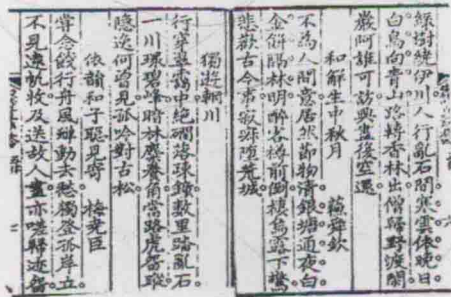 綠樹繞伊川人行亂石間寒雲依晚日
白鳥向青山路轉香林出僧歸野渡閑
巖阿誰可訪興盡復空還
和解生中秋月 蘇舜欽
不為人間意居然節物清銀塘通夜白
金餅隔林明醉客樽前倒棲烏露下驚
悲歡古今事寂寂墮荒城
獨遊輞川
行穿翠靄中絕磵落疎鐘數里踏亂石
一川環碧峰暗林麋養角當路虎留蹤
隱逸何曾見孤吟對古松
依韻和子聰見寄 梅堯臣
嘗念餞行舟風蟬動去愁獨登孤岸立
不見遠帆收及送故人盡亦嗟歸迹留